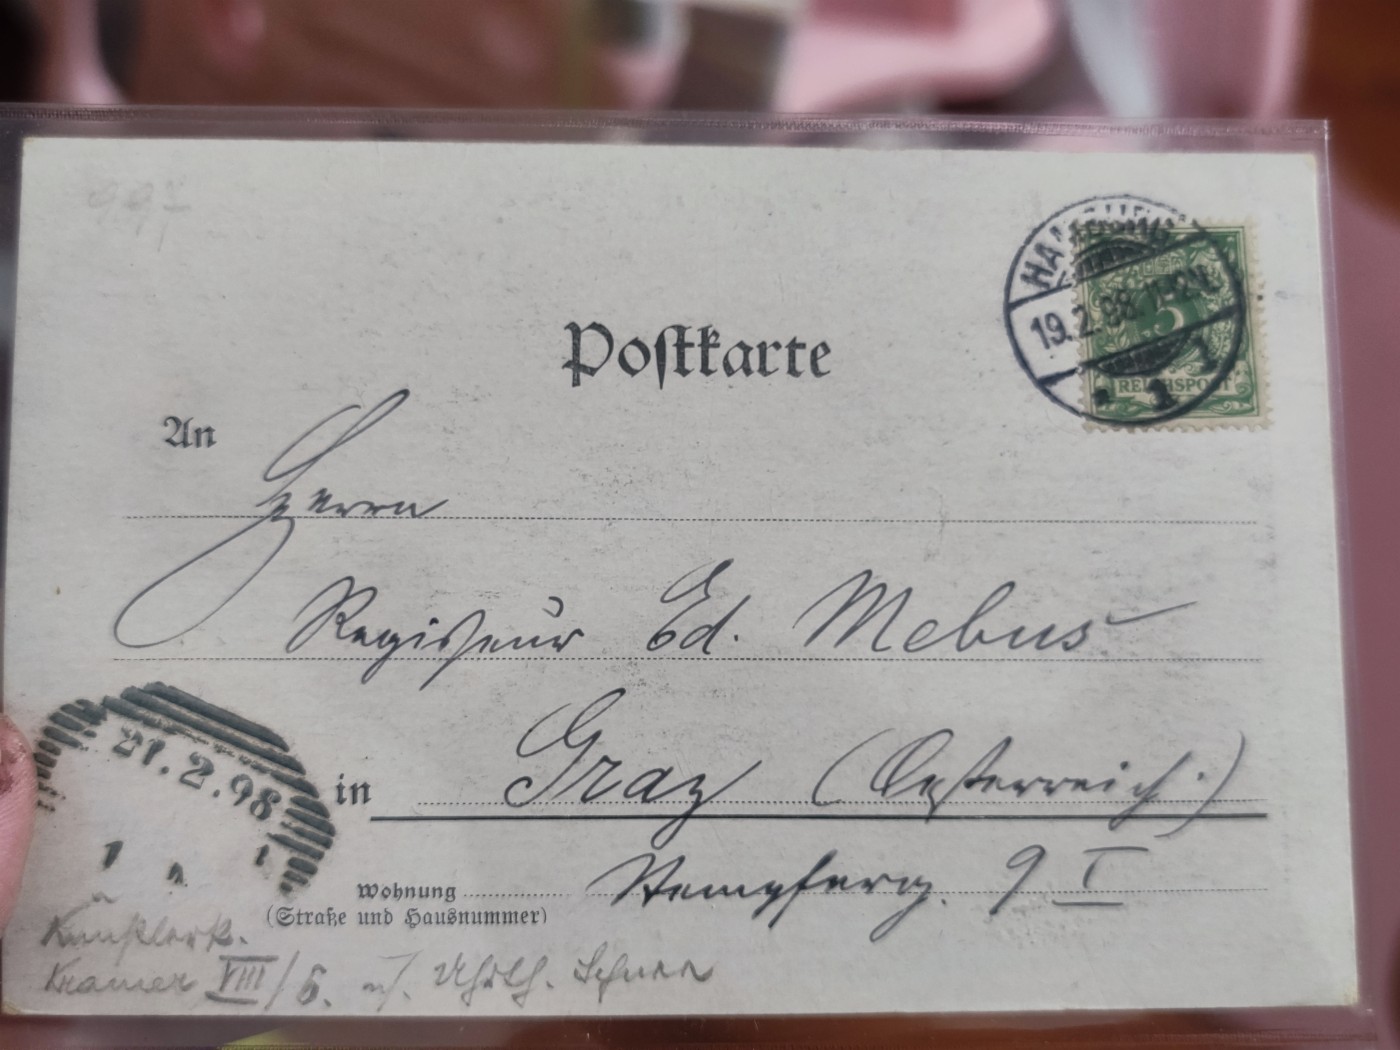 Postkarte
19.2.98.
5
REICHSPOST
1
An
Herrn
Regisseur Ed. Mebus
in Graz (Oesterreich.)
21.2.98.
1
Wohnung Stempferg. 9 I
(Straße und Hausnummer)
Künstlerk.
Kramer VIII/6.